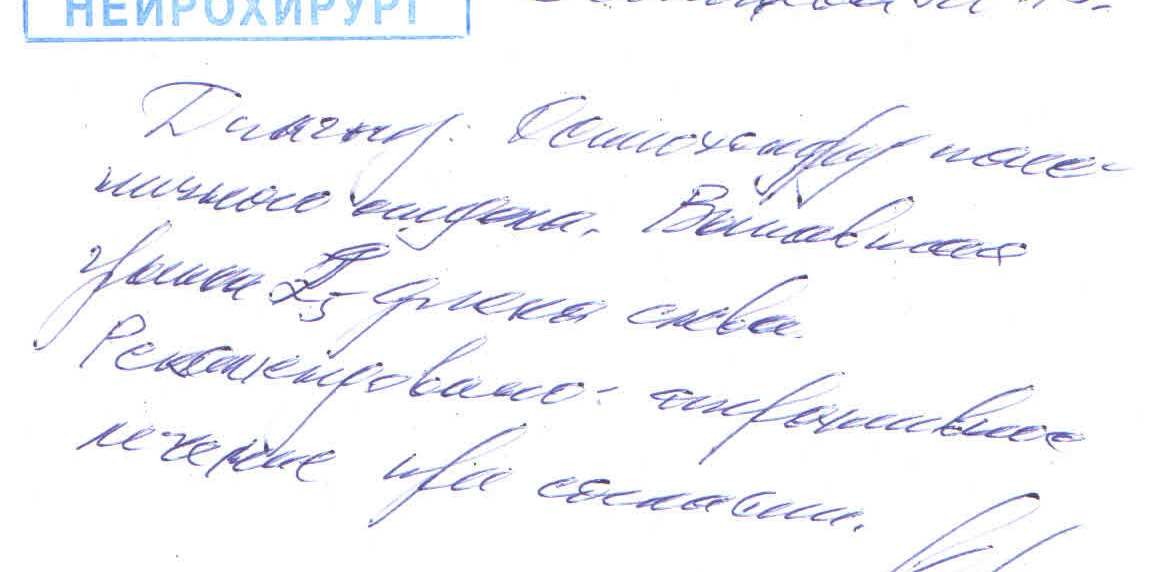 НЕЙРОХИРУРГ
Диагноз: Остеохондроз пояс-
ничного отдела. Выпавшая
грыжа L5 диска слева.
Рекомендовано: оперативное
лечение при согласии.